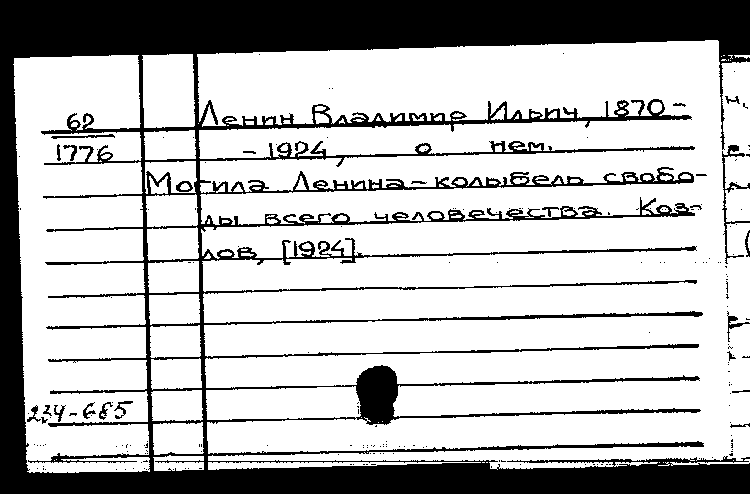 62
1776
Ленин Владимир Ильич, 1870-
-1924, о нем.
Могила Ленина-колыбель свобо-
ды всего человечества. Коз-
лов, [1924].
234-685